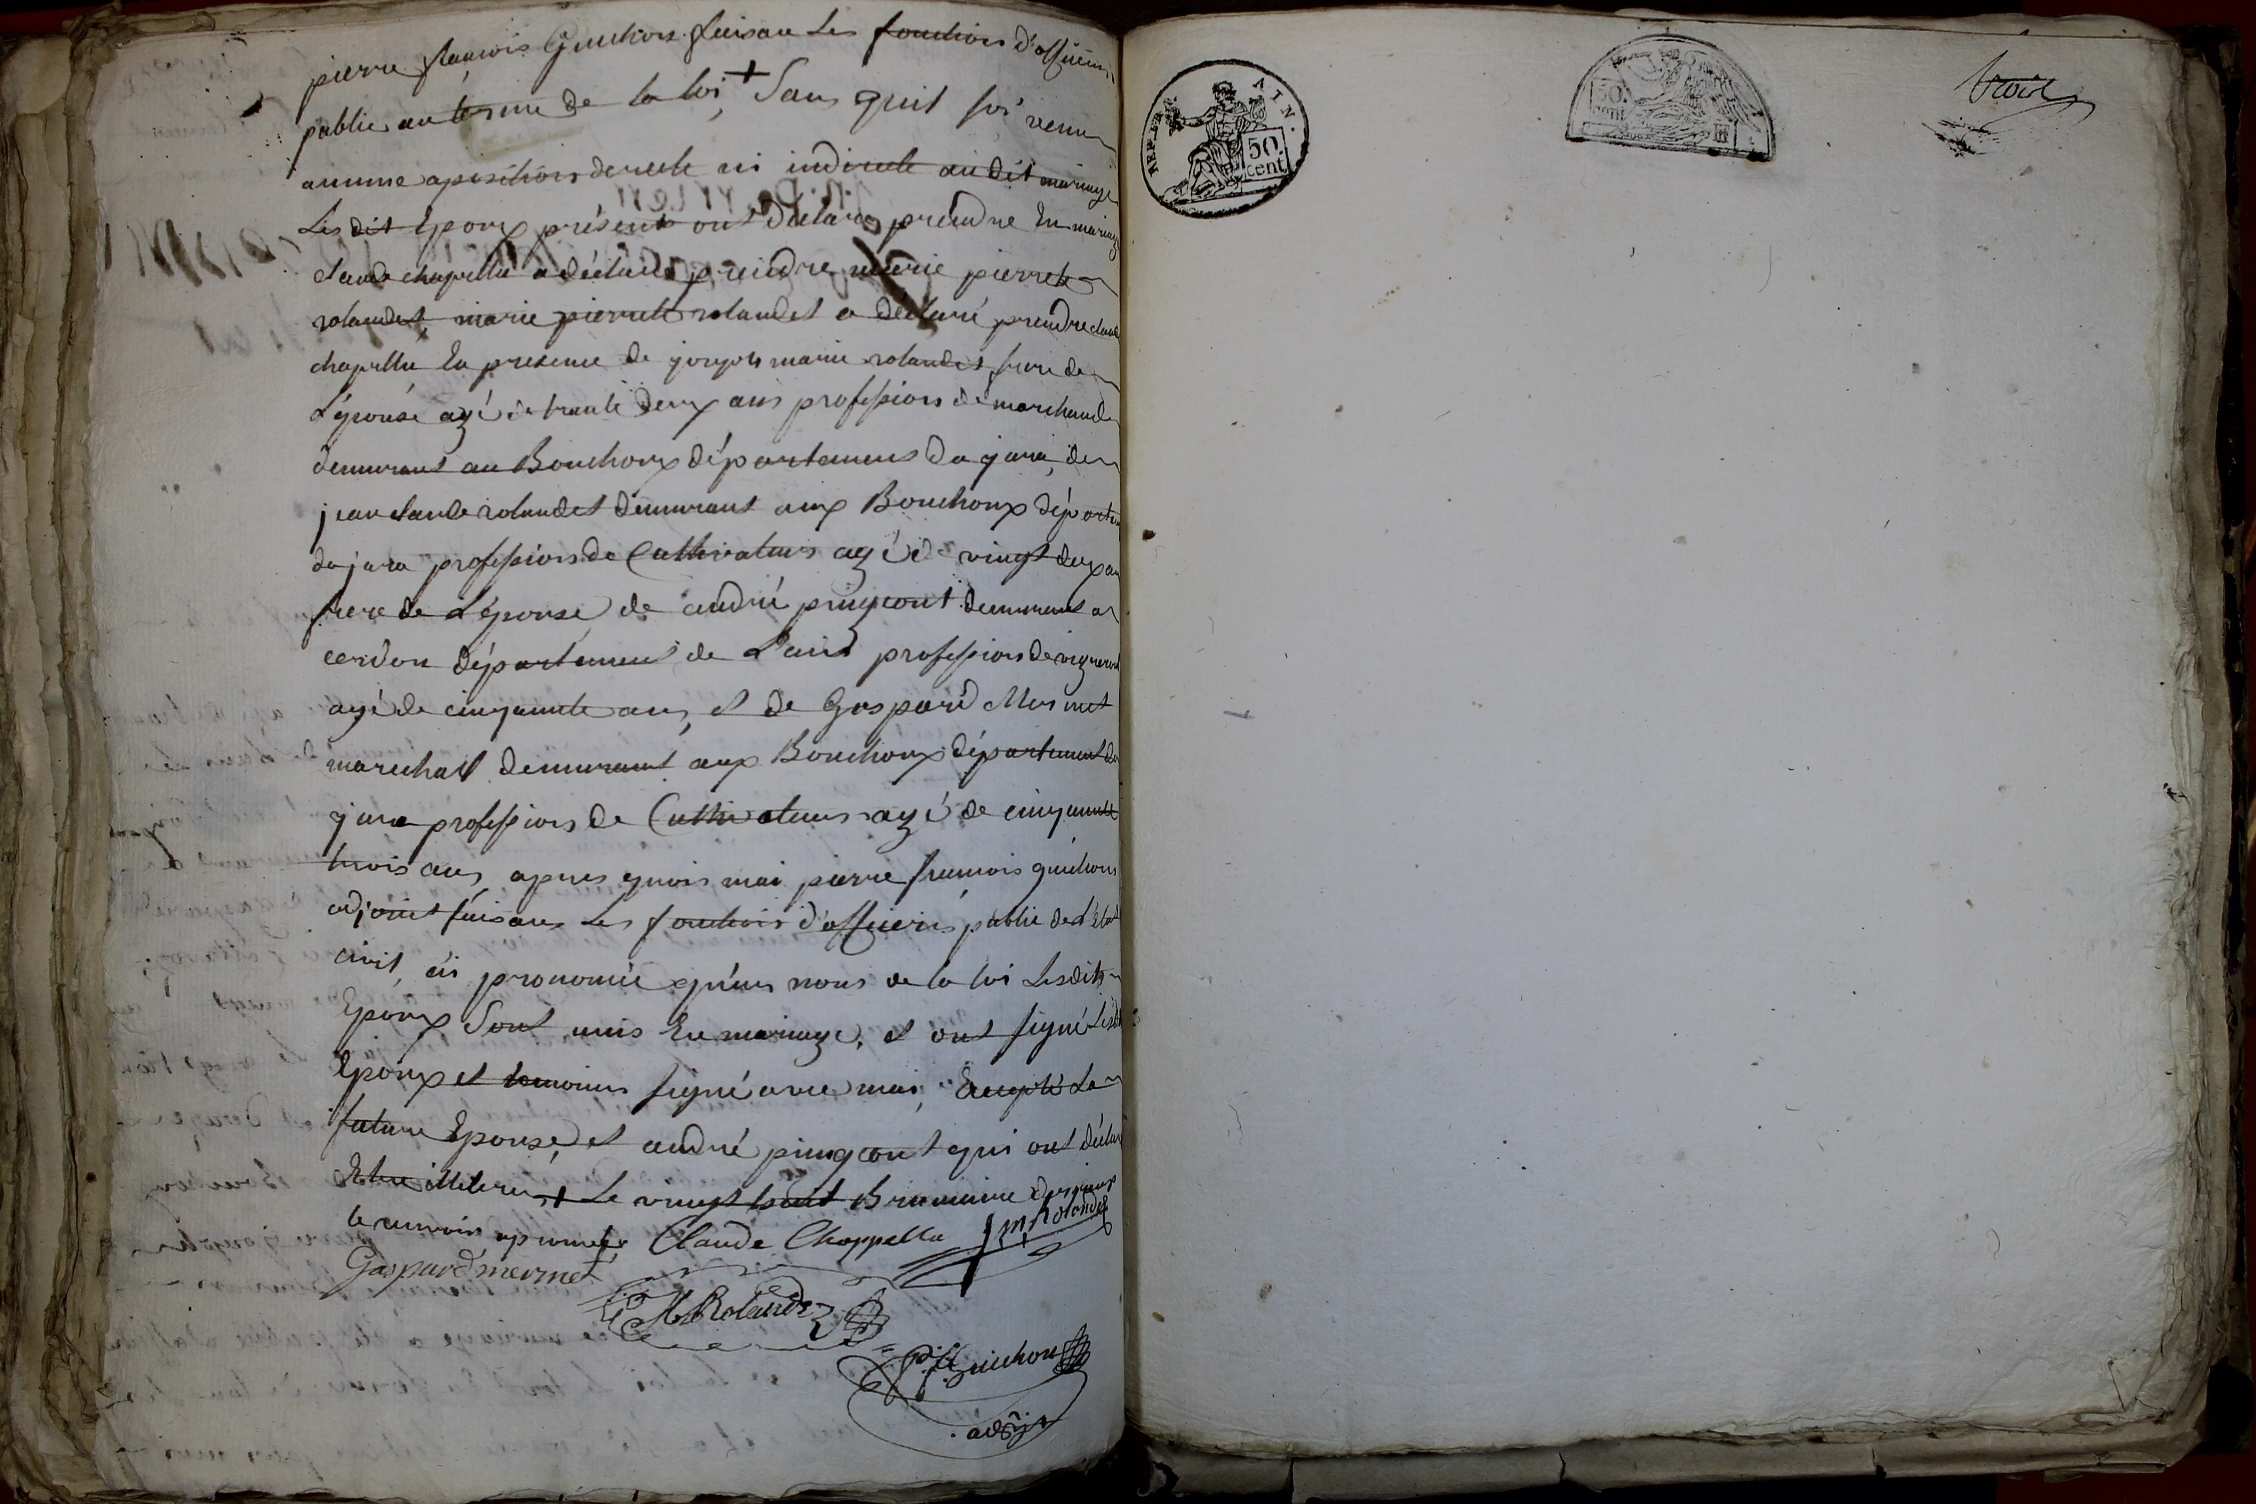 pierre francois Guichon faisan Les fonctions d'officiers
public au terme de la loi + Sans quil soi venu
aucune aposition derecte ni indirecte au dit mariage
Les dit Epoux présent ont déclaré prendre En mariage
claude chapella a déclaré prendre marie pierrete
rolandet, marie pierrete rolandet a déclaré prendre claude
chapella En presence de joseph marie rolandet frere de
L'épouse agé de trante deux ans profession de marchand
demurant au Bouchoux département du jura, de
jean claude rolandet demurant aux Bouchoux départem
du jura profession de Cultivateur agé de vingt deux an
frere de L'épouse de andré demurant a
cerdon département de L'ain profession de vigneron
agé de cinquante ans, et de Gaspard Mermet
marechall demurant aux Bouchoux département du
jura profession de Cultivateur agé de cinquante
trois ans, apres quois moi pierre francois guichon
adjoint faisans Les fonction d'officiers public de L'état
civil, ai prononcé qu'au nons de la loi Lesdits
Epoux Sont unis En mariage, et ont signé Lesdit
Epoux et temoins signé avec moi, Excepté La
future Epouse, et andré qui ont déclaré
Etre illiteré + Le vingt huit Brumaire
le renvois aprouvé Claude Chappella J M Rolandet
Gaspard mermet
Rolandez
P. f. Guichon
adjt
REP. FRA. AIN.
50 cent
50. CENT